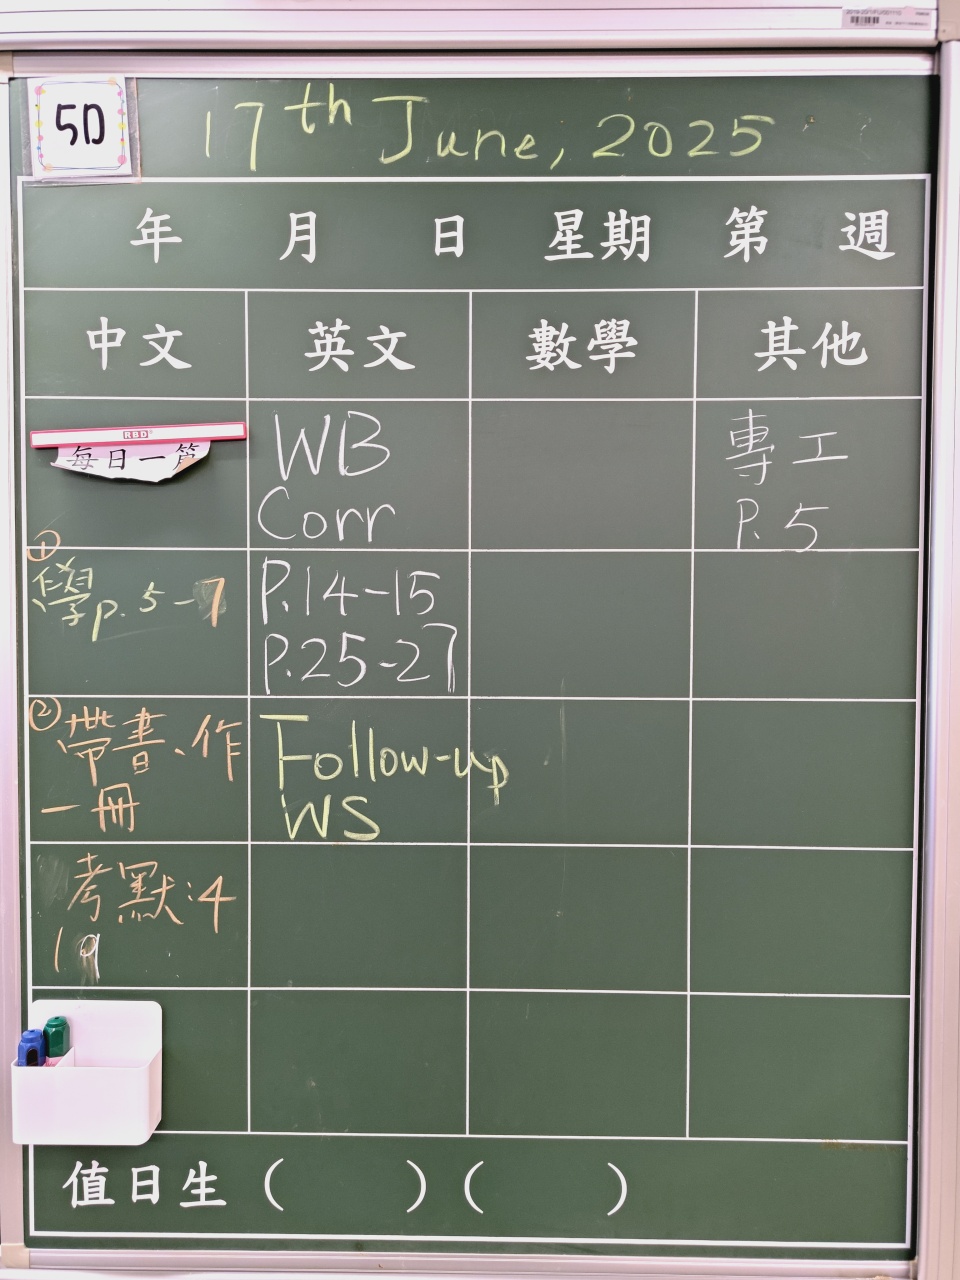 5D
17th June, 2025
年 月 日 星期 第 週
中文 英文 數學 其他
RBD
每日一篇
WB
Corr
專工
P.5
①
學p.5-7
P.14-15
P.25-27
②
帶書、作
一冊
Follow-up
WS
考默:4
19
值日生 ( ) ( )